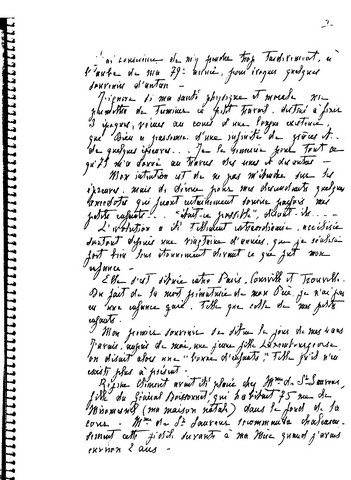 2-
J'ai conscience de m'y prendre trop tardivement, à
l'aube de ma 79e année, pour évoquer quelques
souvenirs d'antan -
J'ignore si ma santé physique et morale me
permettra de terminer ce petit travail, destiné à fixer
époques, vécues au cours d'une longue existence
que Dieu a parsemée d'une infinité de grâces et
de quelques épreuves... Je Le remercie pour tout ce
qu'Il m'a donné au travers des unes et des autres -
Mon intention est de ne pas m'étendre sur les
épreuves, mais de donner pour mes descendants quelques
anecdotes qui feront certainement sourire parfois mes
petits enfants... "était-ce possible", diront-ils...
L'évolution a été tellement extraordinaire, accélérée
surtout depuis une vingtaine d'années, que je réalise
fort bien leur étonnement devant ce que fut mon
enfance -
Elle s'est déroulée entre Paris, Louville et Trouville.
Du fait de la mort prématurée de mon Père, je n'ai pas
eu une enfance gaie, telle que celle de mes petits
enfants.
Mon premier souvenir se situe le jour de mes 4 ans
J'avais, auprès de moi, une jeune fille Luxembourgeoise,
on disait alors une "bonne d'enfants", telle qu'il n'en
existe plus à présent.
Régine Clément avait été placée chez Mme de St Sauveur,
fille du Général Boissonnet, qui habitait 75 rue de
Miromesnil (ma maison natale) dans le fond de la
cour - Mme de St Sauveur recommanda chaleureu-
sement cette fidèle servante à ma Mère quand j'avais
environ 2 ans -